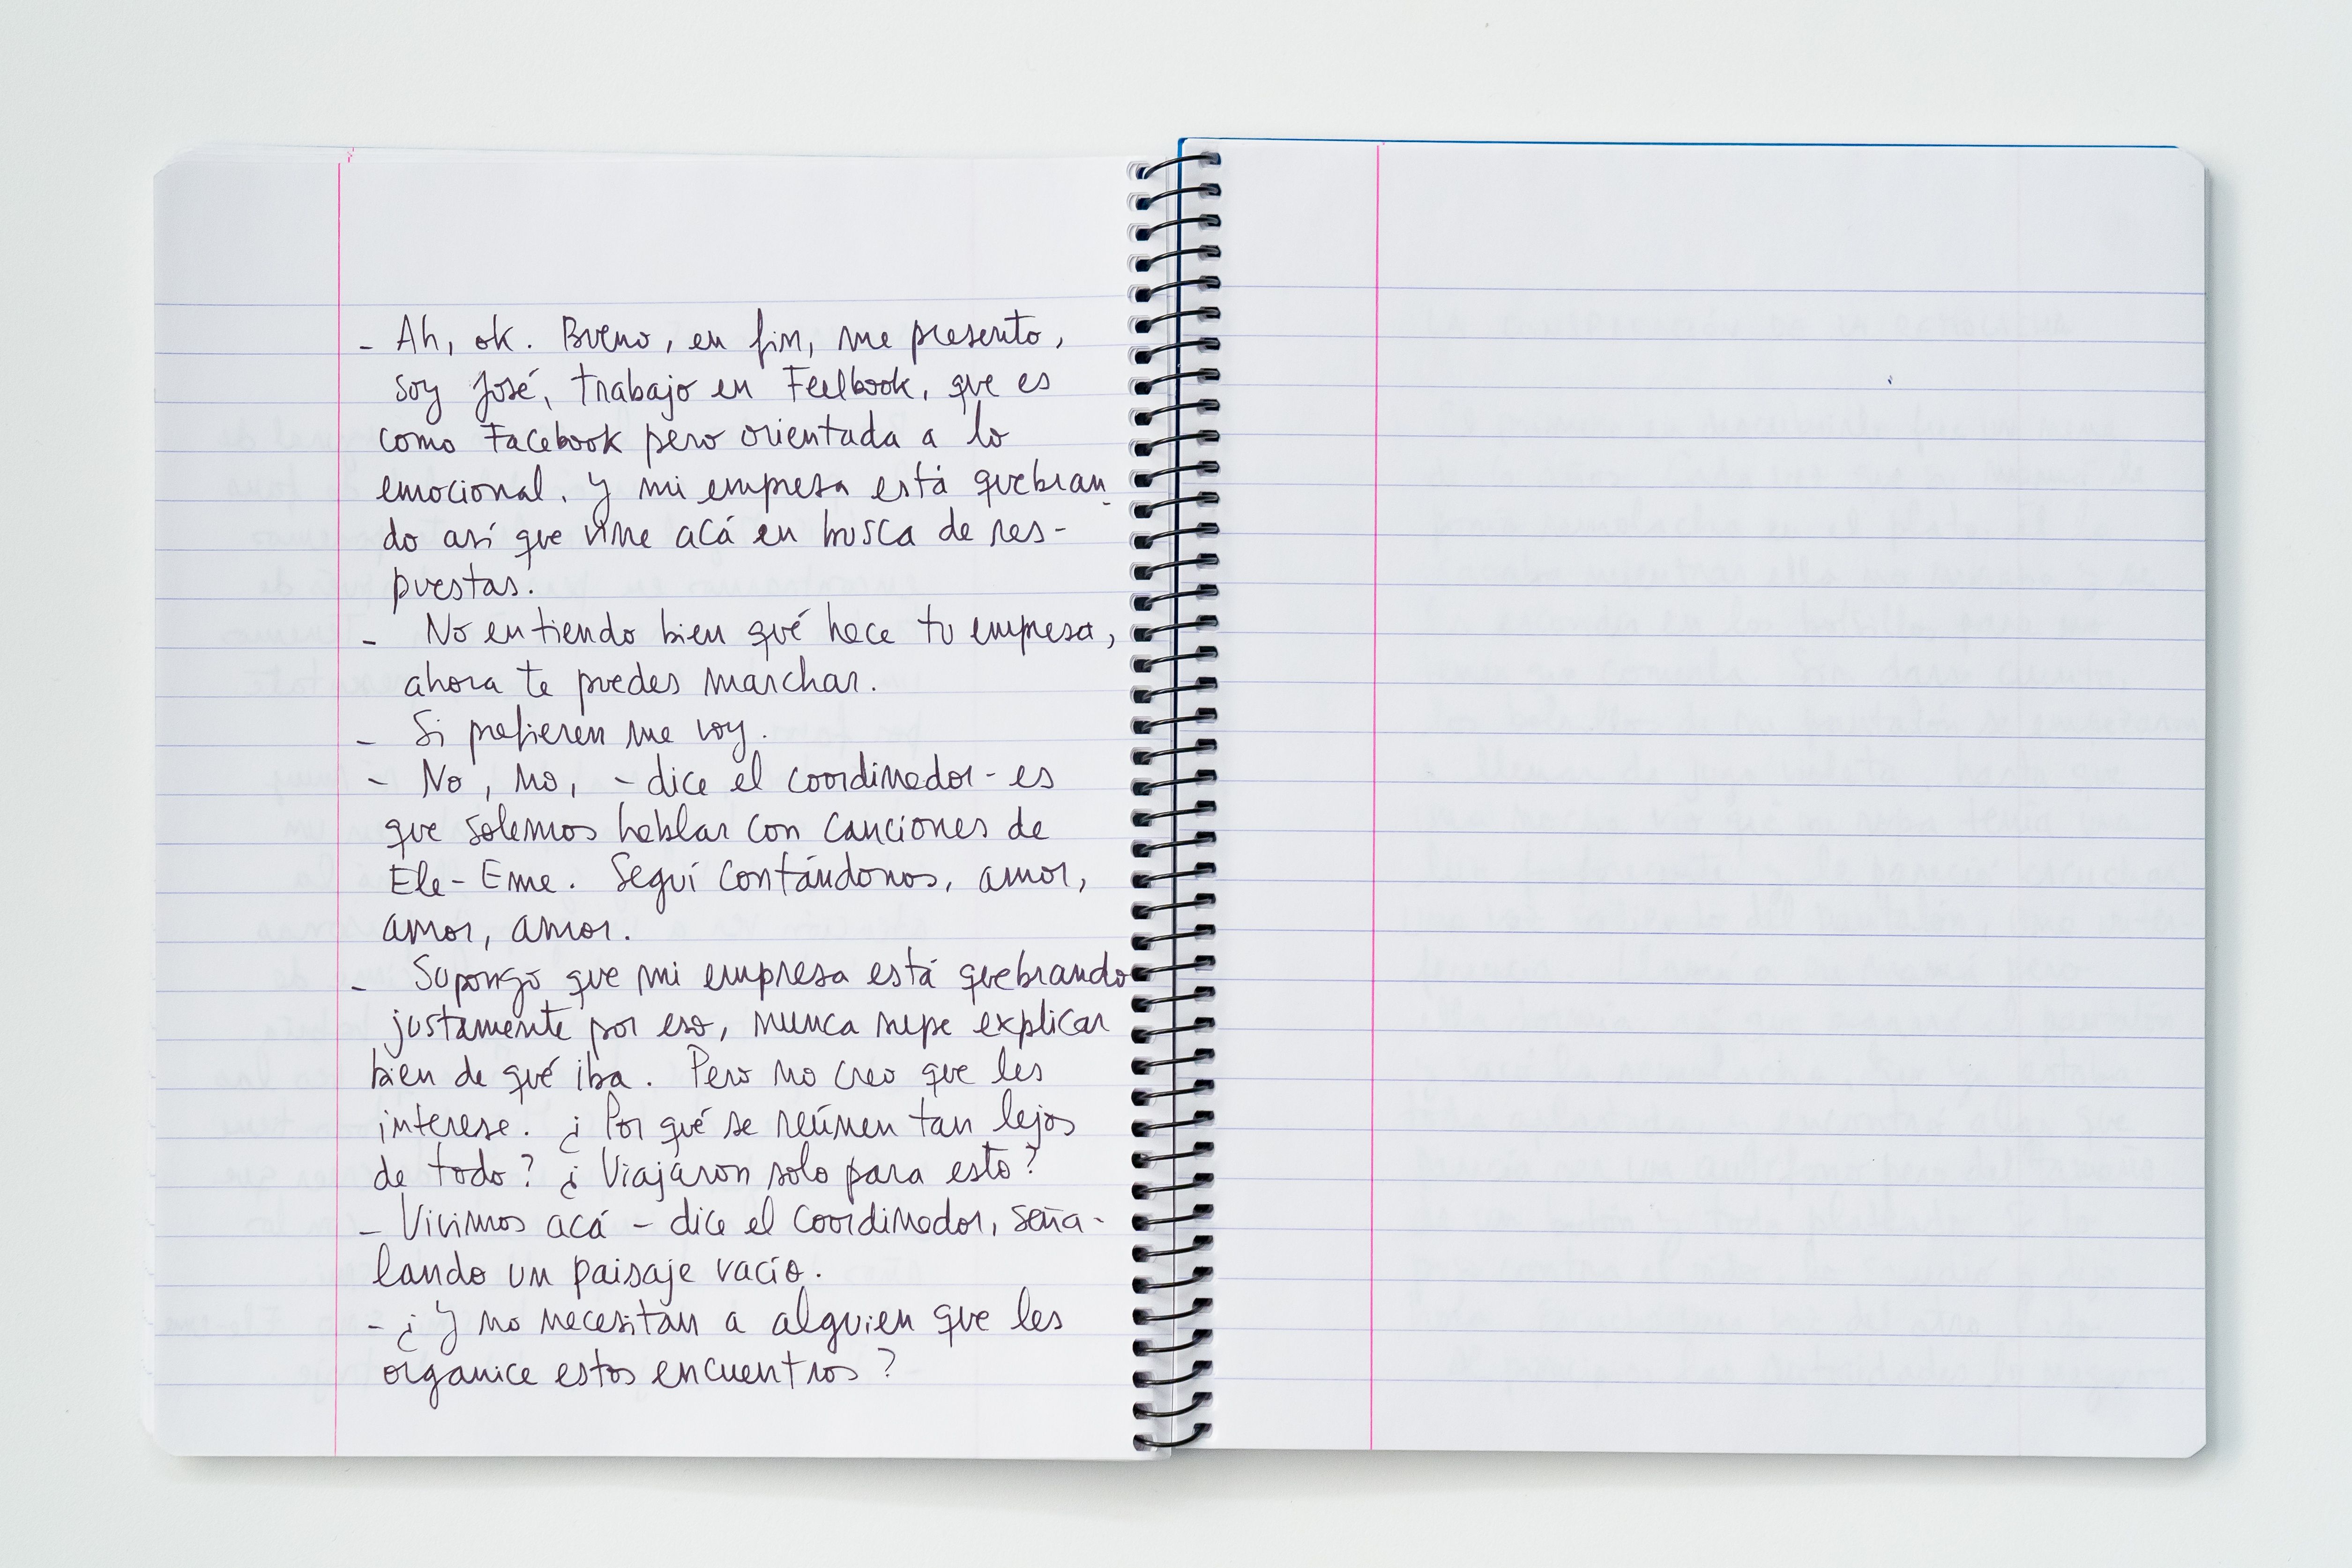 - Ah, ok. Bueno, en fin, me presento,
soy José, trabajo en Feelbook, que es
como Facebook pero orientada a lo
emocional. Y mi empresa está quebran-
do así que vine acá en busca de res-
puestas.
- No entiendo bien qué hace tu empresa,
ahora te puedes marchar.
- Si prefieren me voy.
- No, no, - dice el coordinador - es
que solemos hablar con canciones de
Ele-Eme. Seguí contándonos, amor,
amor, amor.
- Supongo que mi empresa está quebrando
justamente por eso, nunca supe explicar
bien de qué iba. Pero no creo que les
interese. ¿Por qué se reúnen tan lejos
de todo? ¿Viajaron solo para esto?
- Vivimos acá - dice el coordinador, seña-
lando un paisaje vacío.
- ¿Y no necesitan a alguien que les
organice estos encuentros?